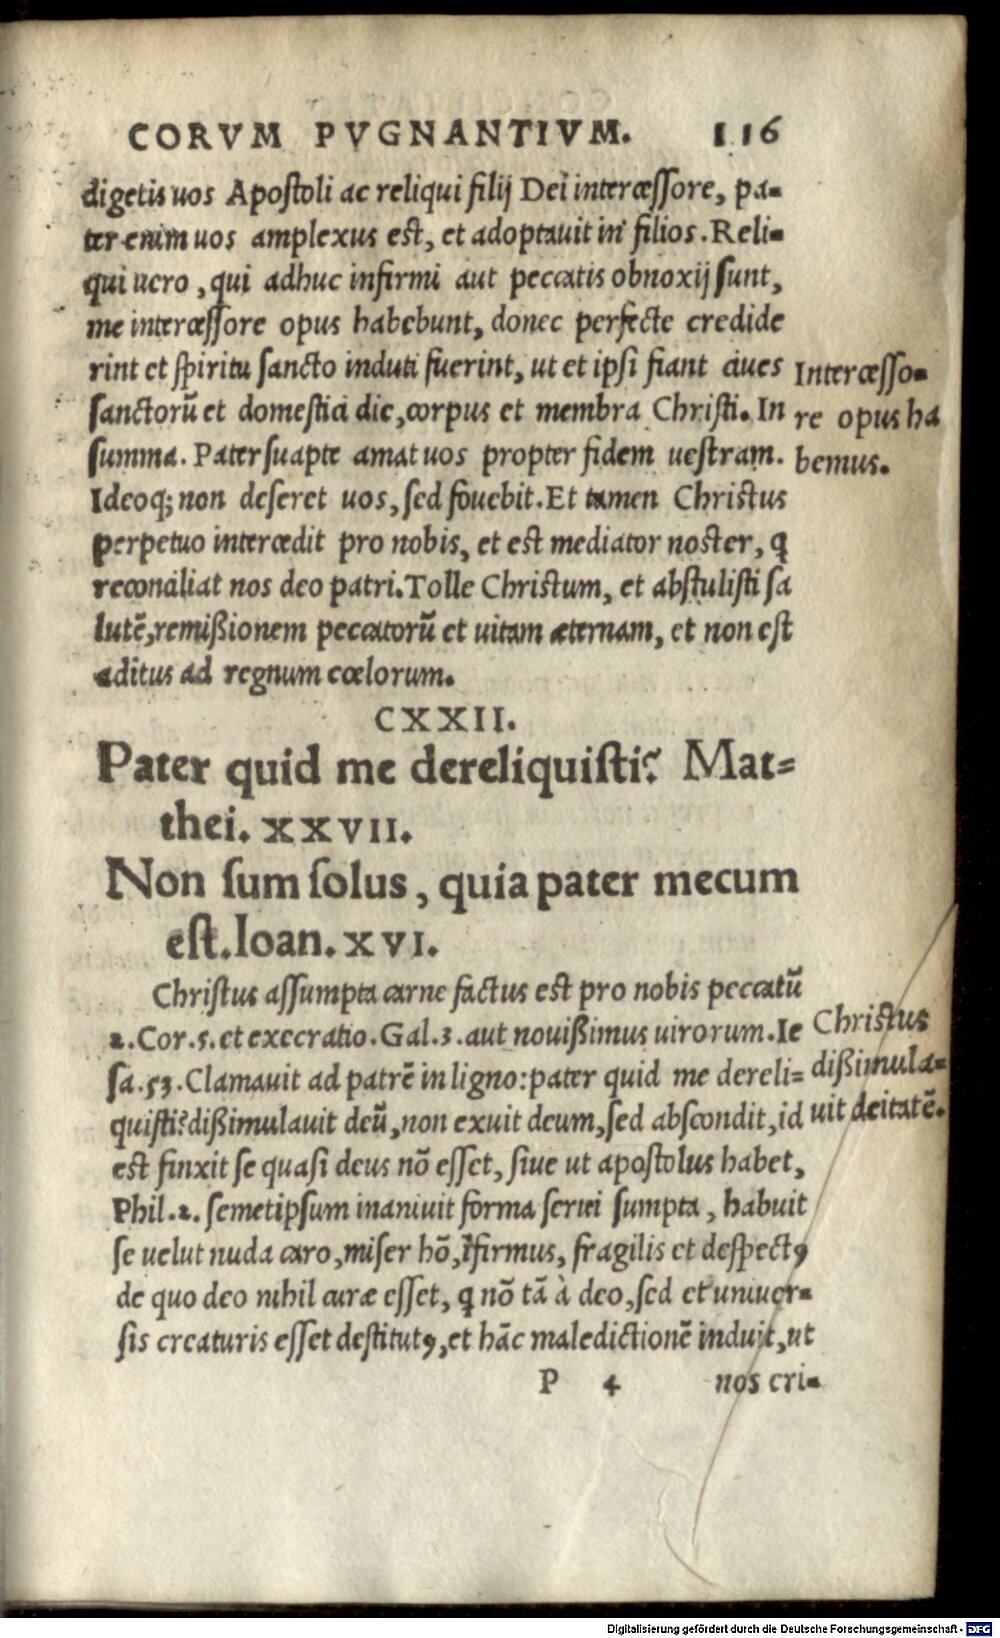 CORVM PVGNANTIVM. 116
digetis uos Apostoli ac reliqui filij Dei intercessore, pa-
ter enim uos amplexus est, et adoptauit in filios. Reli-
qui uero, qui adhuc infirmi aut peccatis obnoxij sunt,
me intercessore opus habebunt, donec perfecte credide
rint et spiritu sancto induti fuerint, ut et ipsi fiant ciues
sanctorū et domestici die, corpus et membra Christi. In
summa. Pater suapte amat uos propter fidem uestram.
Intercesso-
re opus ha
bemus.
Ideoq; non deseret uos, sed fouebit. Et tamen Christus
perpetuo intercedit pro nobis, et est mediator noster, q
reconciliat nos deo patri. Tolle Christum, et abstulisti sa
lutē, remißionem peccatorū et uitam æternam, et non est
aditus ad regnum cœlorum.
CXXII.
Pater quid me dereliquisti? Mat-
thei. XXVII.
Non sum solus, quia pater mecum
est. Ioan. XVI.
Christus assumpta carne factus est pro nobis peccatū
2. Cor. 5. et execratio. Gal. 3. aut nouißimus uirorum. Ie
sa. 53. Clamauit ad patrē in ligno: pater quid me dereli-
quisti? dißimulauit deū, non exuit deum, sed abscondit, id
Christus
dißimula-
uit deitatē.
est finxit se quasi deus nō esset, siue ut apostolus habet,
Phil. 2. semetipsum inaniuit forma serui sumpta, habuit
se uelut nuda caro, miser hō, īfirmus, fragilis et despectꝰ
de quo deo nihil curæ esset, q nō tā à deo, sed et uniuer-
sis creaturis esset destitutꝰ, et hāc maledictionē induit, ut
P 4 nos cri-
Digitalisierung gefördert durch die Deutsche Forschungsgemeinschaft - DFG